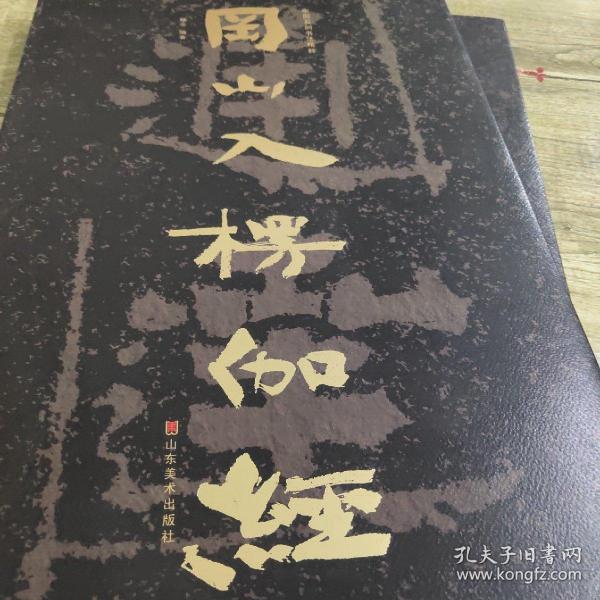 岡山入楞伽經
山东美术出版社
孔夫子旧书网
www.kongfz.com